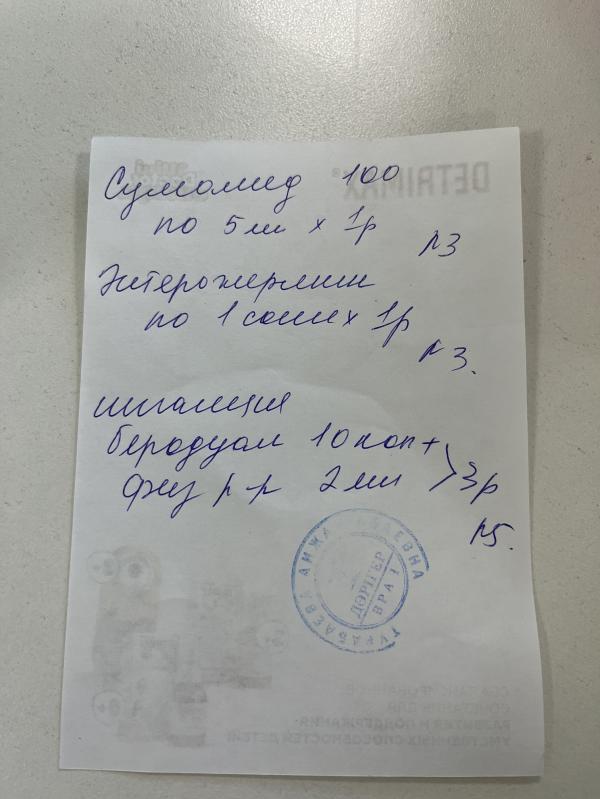 Сумамед 100
по 5 мл х 1р
N3
Энтерожермин
по 1 саше х 1р
N3.
ингаляция
беродуал 10 кап +
физ р-р 2 мл > 3р
N5.
ТУРАБАЕВА АИЖА
ДӘРІГЕР
ВРАЧ
DETRIMAX®
РАЗВИТИЯ И ПОДДЕРЖАНИЯ
УМСТВЕННЫХ СПОСОБНОСТЕЙ ДЕТЕЙ